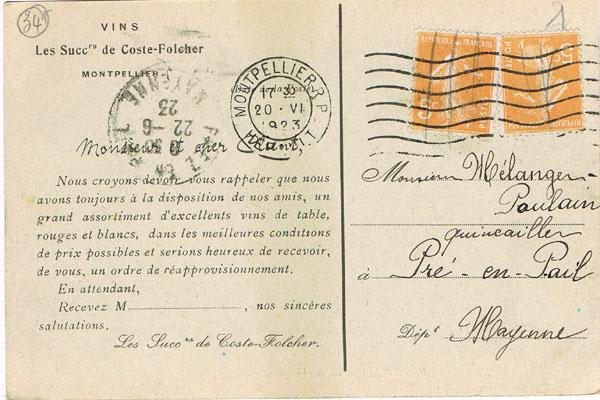 34
VINS
Les Succrs de Coste-Folcher
MONTPELLIER
MONTPELLIER R.P.
17 30
20 · VI
1923
HÉRAULT
MAYENNE
22-6
23
Monsieur et cher
Nous croyons devoir vous rappeler que nous
avons toujours à la disposition de nos amis, un
grand assortiment d'excellents vins de table,
rouges et blancs, dans les meilleures conditions
de prix possibles et serions heureux de recevoir,
de vous, un ordre de réapprovisionnement.
En attendant,
Recevez M, nos sincères
salutations.
Les Succrs de Coste-Folcher.
1
REPUBLIQUE FRANÇAISE
POSTES
5c
5c
Monsieur Mélanger-
Poulain
quincailler
à Pré-en-Pail
Dépt Mayenne